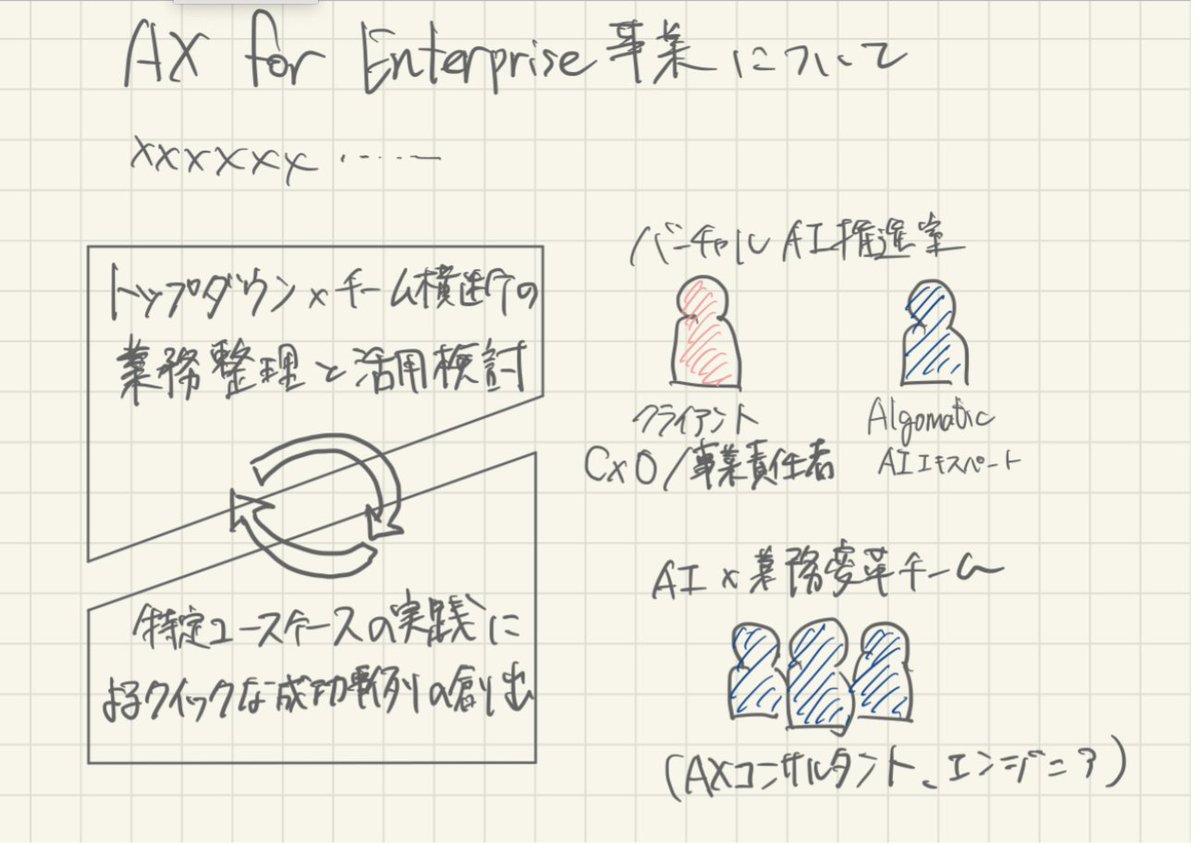 AX for Enterprise事業について
xxxxxxx ‥‥‥
トップダウン×チーム横断での
業務整理と活用検討
特定ユースケースの実践に
よるクイックな成功事例の創出
バーチャルAI推進室
クライアント
CxO/事業責任者
Algomatic
AIエキスパート
AI×業務変革チーム
(AXコンサルタント、エンジニア)